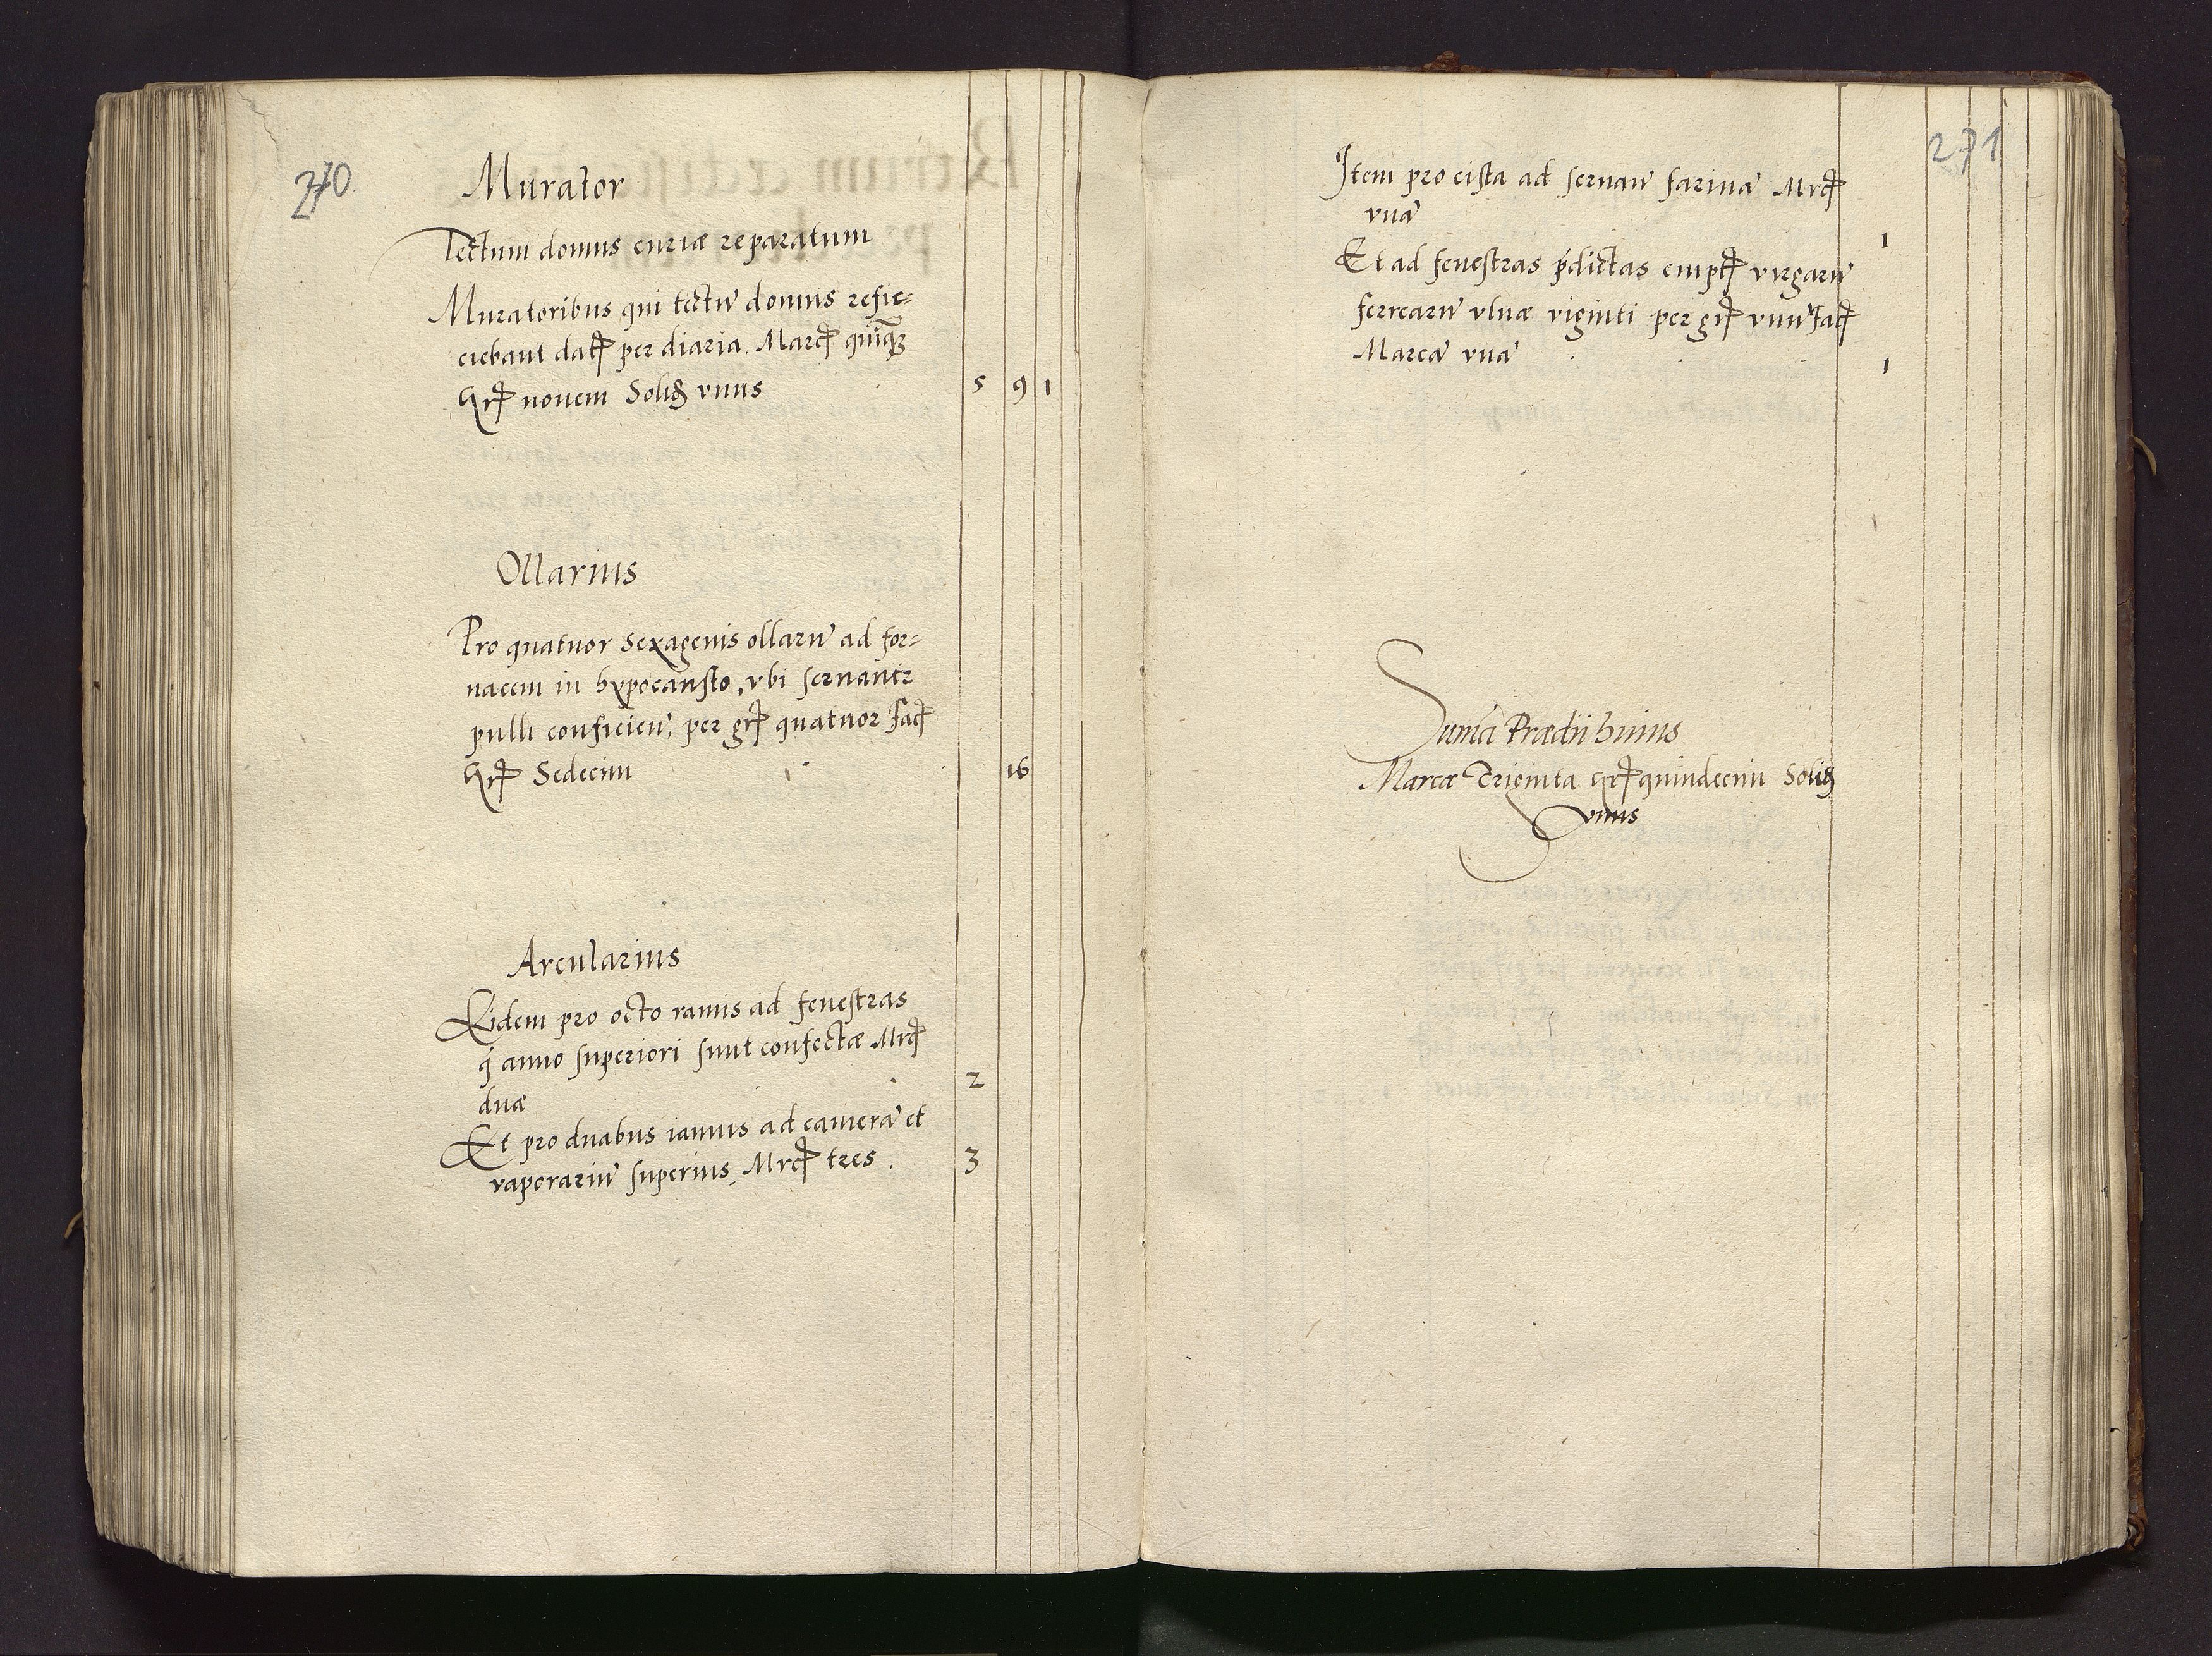 270
Murator
Tectum domus curiæ reparatum
Muratoribus qui tectũ domus refie=
ciebant datꝭ per diaria. Marcꝭ quĩqꝫ
grꝭ nouem Solið vnus 5 9 1
Ollarius
Pro quatuor sexagenis ollarũ ad for=
nacem in hypocausto, vbi seruantr
pulli conficien̄, per grꝭ quatuor facꝭ
grꝭ Sedecim 16
Arcularius
Eidem pro octo ramis ad fenestras
q̄ anno superiori sunt confectæ Mrcꝭ
duæ 2
Et pro duabus ianuis ad camerã et
vaporariũ superius. Mrcꝭ tres. 3
271
Item pro cista ad seruan̄ farinã Mrcꝭ
vnã 1
Et ad fenestras p̄dictas emptꝭ virgarũ
ferrearũ vlnæ viginti per grꝭ vnũ facꝭ
Marcã vnã 1
Sum̃a Prædii huius
Marcæ Triginta grꝭ quindecim Solið
vnus